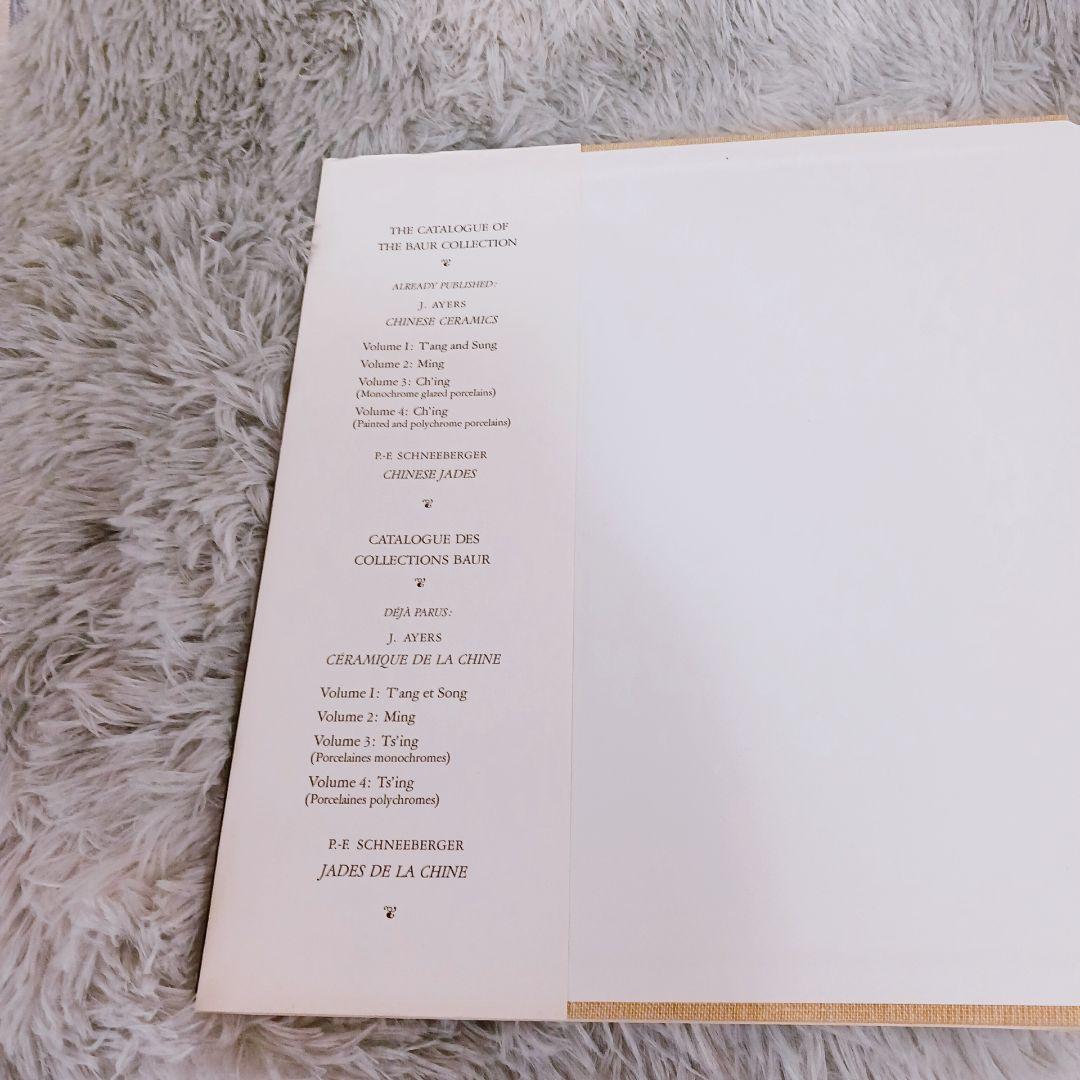 THE CATALOGUE OF
THE BAUR COLLECTION
ALREADY PUBLISHED:
J. AYERS
CHINESE CERAMICS
Volume 1: T'ang and Sung
Volume 2: Ming
Volume 3: Ch'ing
(Monochrome glazed porcelains)
Volume 4: Ch'ing
(Painted and polychrome porcelains)
P.-F. SCHNEEBERGER
CHINESE JADES
CATALOGUE DES
COLLECTIONS BAUR
DÉJÀ PARUS:
J. AYERS
CÉRAMIQUE DE LA CHINE
Volume 1: T'ang et Song
Volume 2: Ming
Volume 3: Ts'ing
(Porcelaines monochromes)
Volume 4: Ts'ing
(Porcelaines polychromes)
P.-F. SCHNEEBERGER
JADES DE LA CHINE